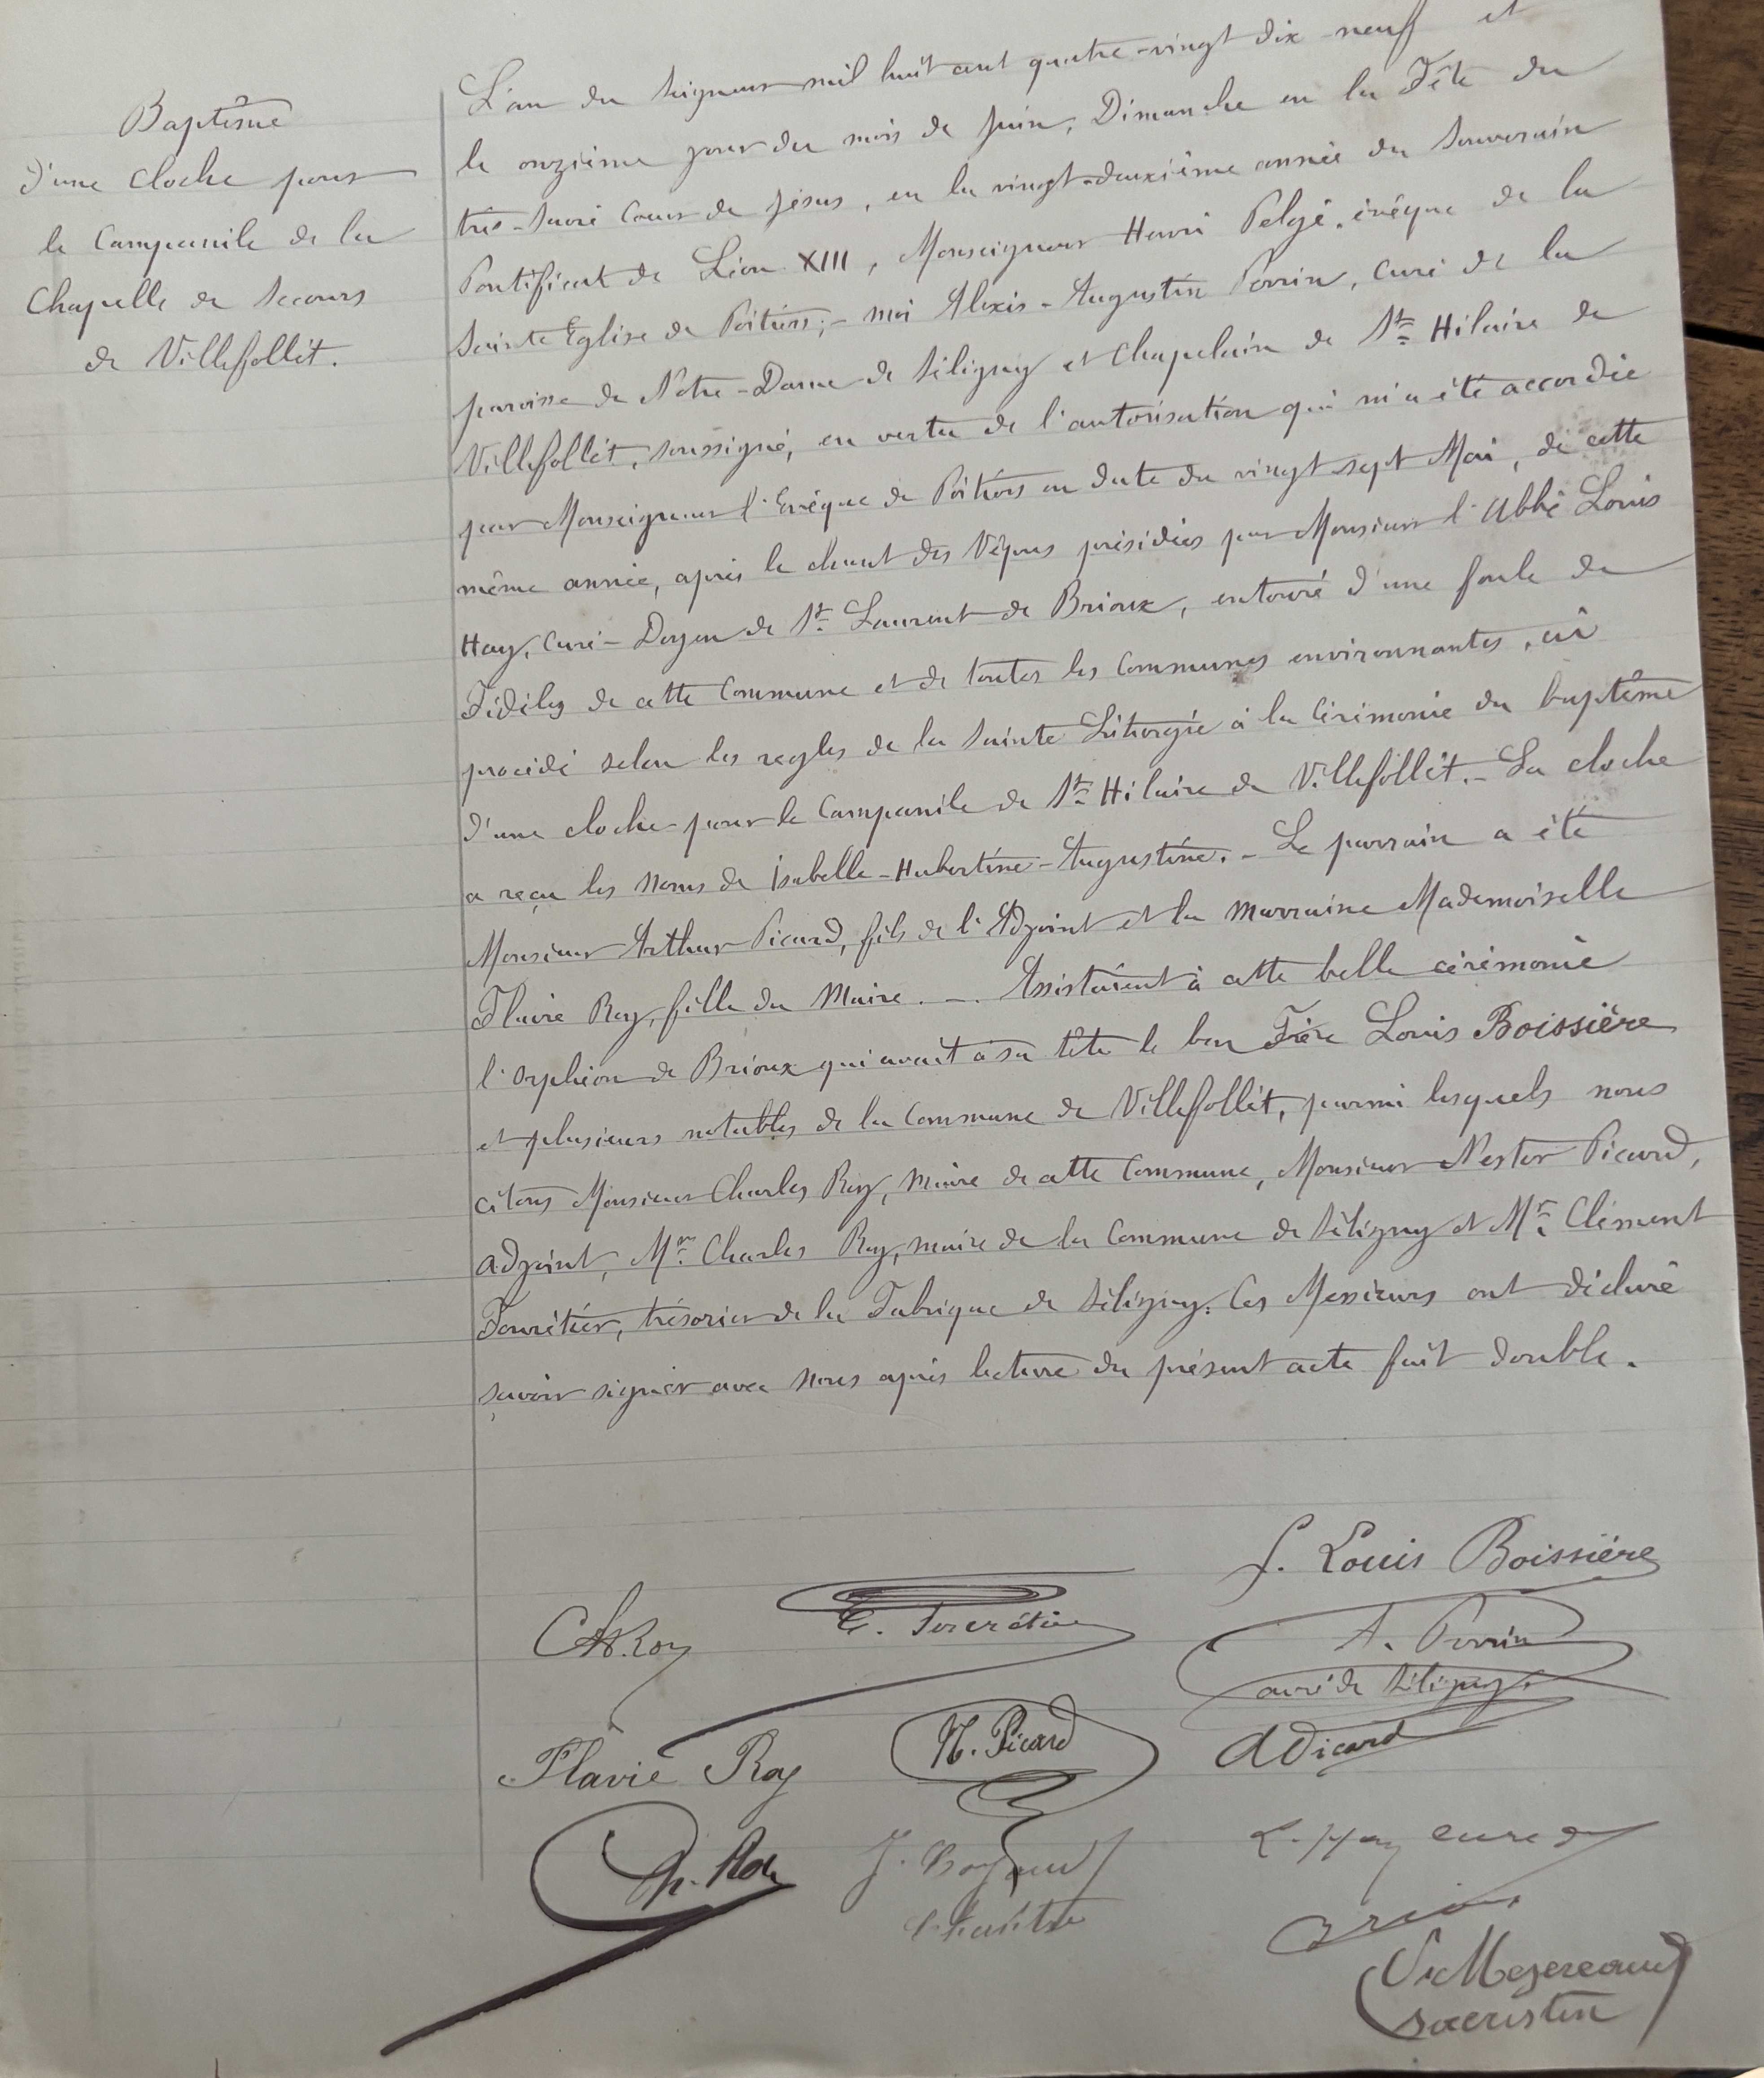 Baptême
d'une Cloche pour
le Campanile de la
Chapelle de Secours
de Villefollêt.
L'an du Seigneur mil huit cent quatre-vingt dix-neuf et
le onzième jour du mois de Juin, Dimanche en la Fête du
très-Sacré Cœur de Jésus, en la vingt-deuxième année du Souverain
Pontificat de Léon XIII, Monseigneur Henri Pelgé, évêque de la
Sainte Eglise de Poitiers;- moi Alexis-Augustin Perrin, Curé de la
paroisse de Notre-Dame de Séligny et Chapelain de St Hilaire de
Villefollêt, soussigné, en vertu de l'autorisation qui m'a été accordée
par Monseigneur l'Evêque de Poitiers en date du vingt-sept Mai, de cette
même année, après le chant des Vêpres présidées par Monsieur l'Abbé Louis
Hay, Curé-Doyen de St Laurent de Brioux, entouré d'une foule de
Fidèles de cette Commune et de toutes les Communes environnantes, ai
procédé selon les règles de la Sainte Liturgie à la Cérémonie du baptême
d'une cloche pour le Campanile de St Hilaire de Villefollêt.- La cloche
a reçu les noms de Isabelle-Hubertine-Augustine.- Le parrain a été
Monsieur Arthur Picard, fils de l'Adjoint et la Marraine Mademoiselle
Flavie Roy, fille du Maire. -. Assistaient à cette belle cérémonie
l'Orphéon de Brioux qui avait à sa tête le bon Frère Louis Boissière
et plusieurs notables de la Commune de Villefollêt, parmi lesquels nous
citons Monsieur Charles Roy, Maire de cette Commune, Monsieur Nestor Picard,
adjoint, Mr Charles Roy, maire de la Commune de Séligny et Mr Clément
trésorier de la Fabrique de Séligny. Ces Messieurs ont déclaré
savoir signer avec nous après lecture du présent acte fait double.
f. Louis Boissière
Ch. Roy
A. Perrin
curé de Séligny.
Flavie Roy
N. Picard
A Picard
Ch. Roy
J.
L. Hay curé d
Chantre
Brioux
sacristin